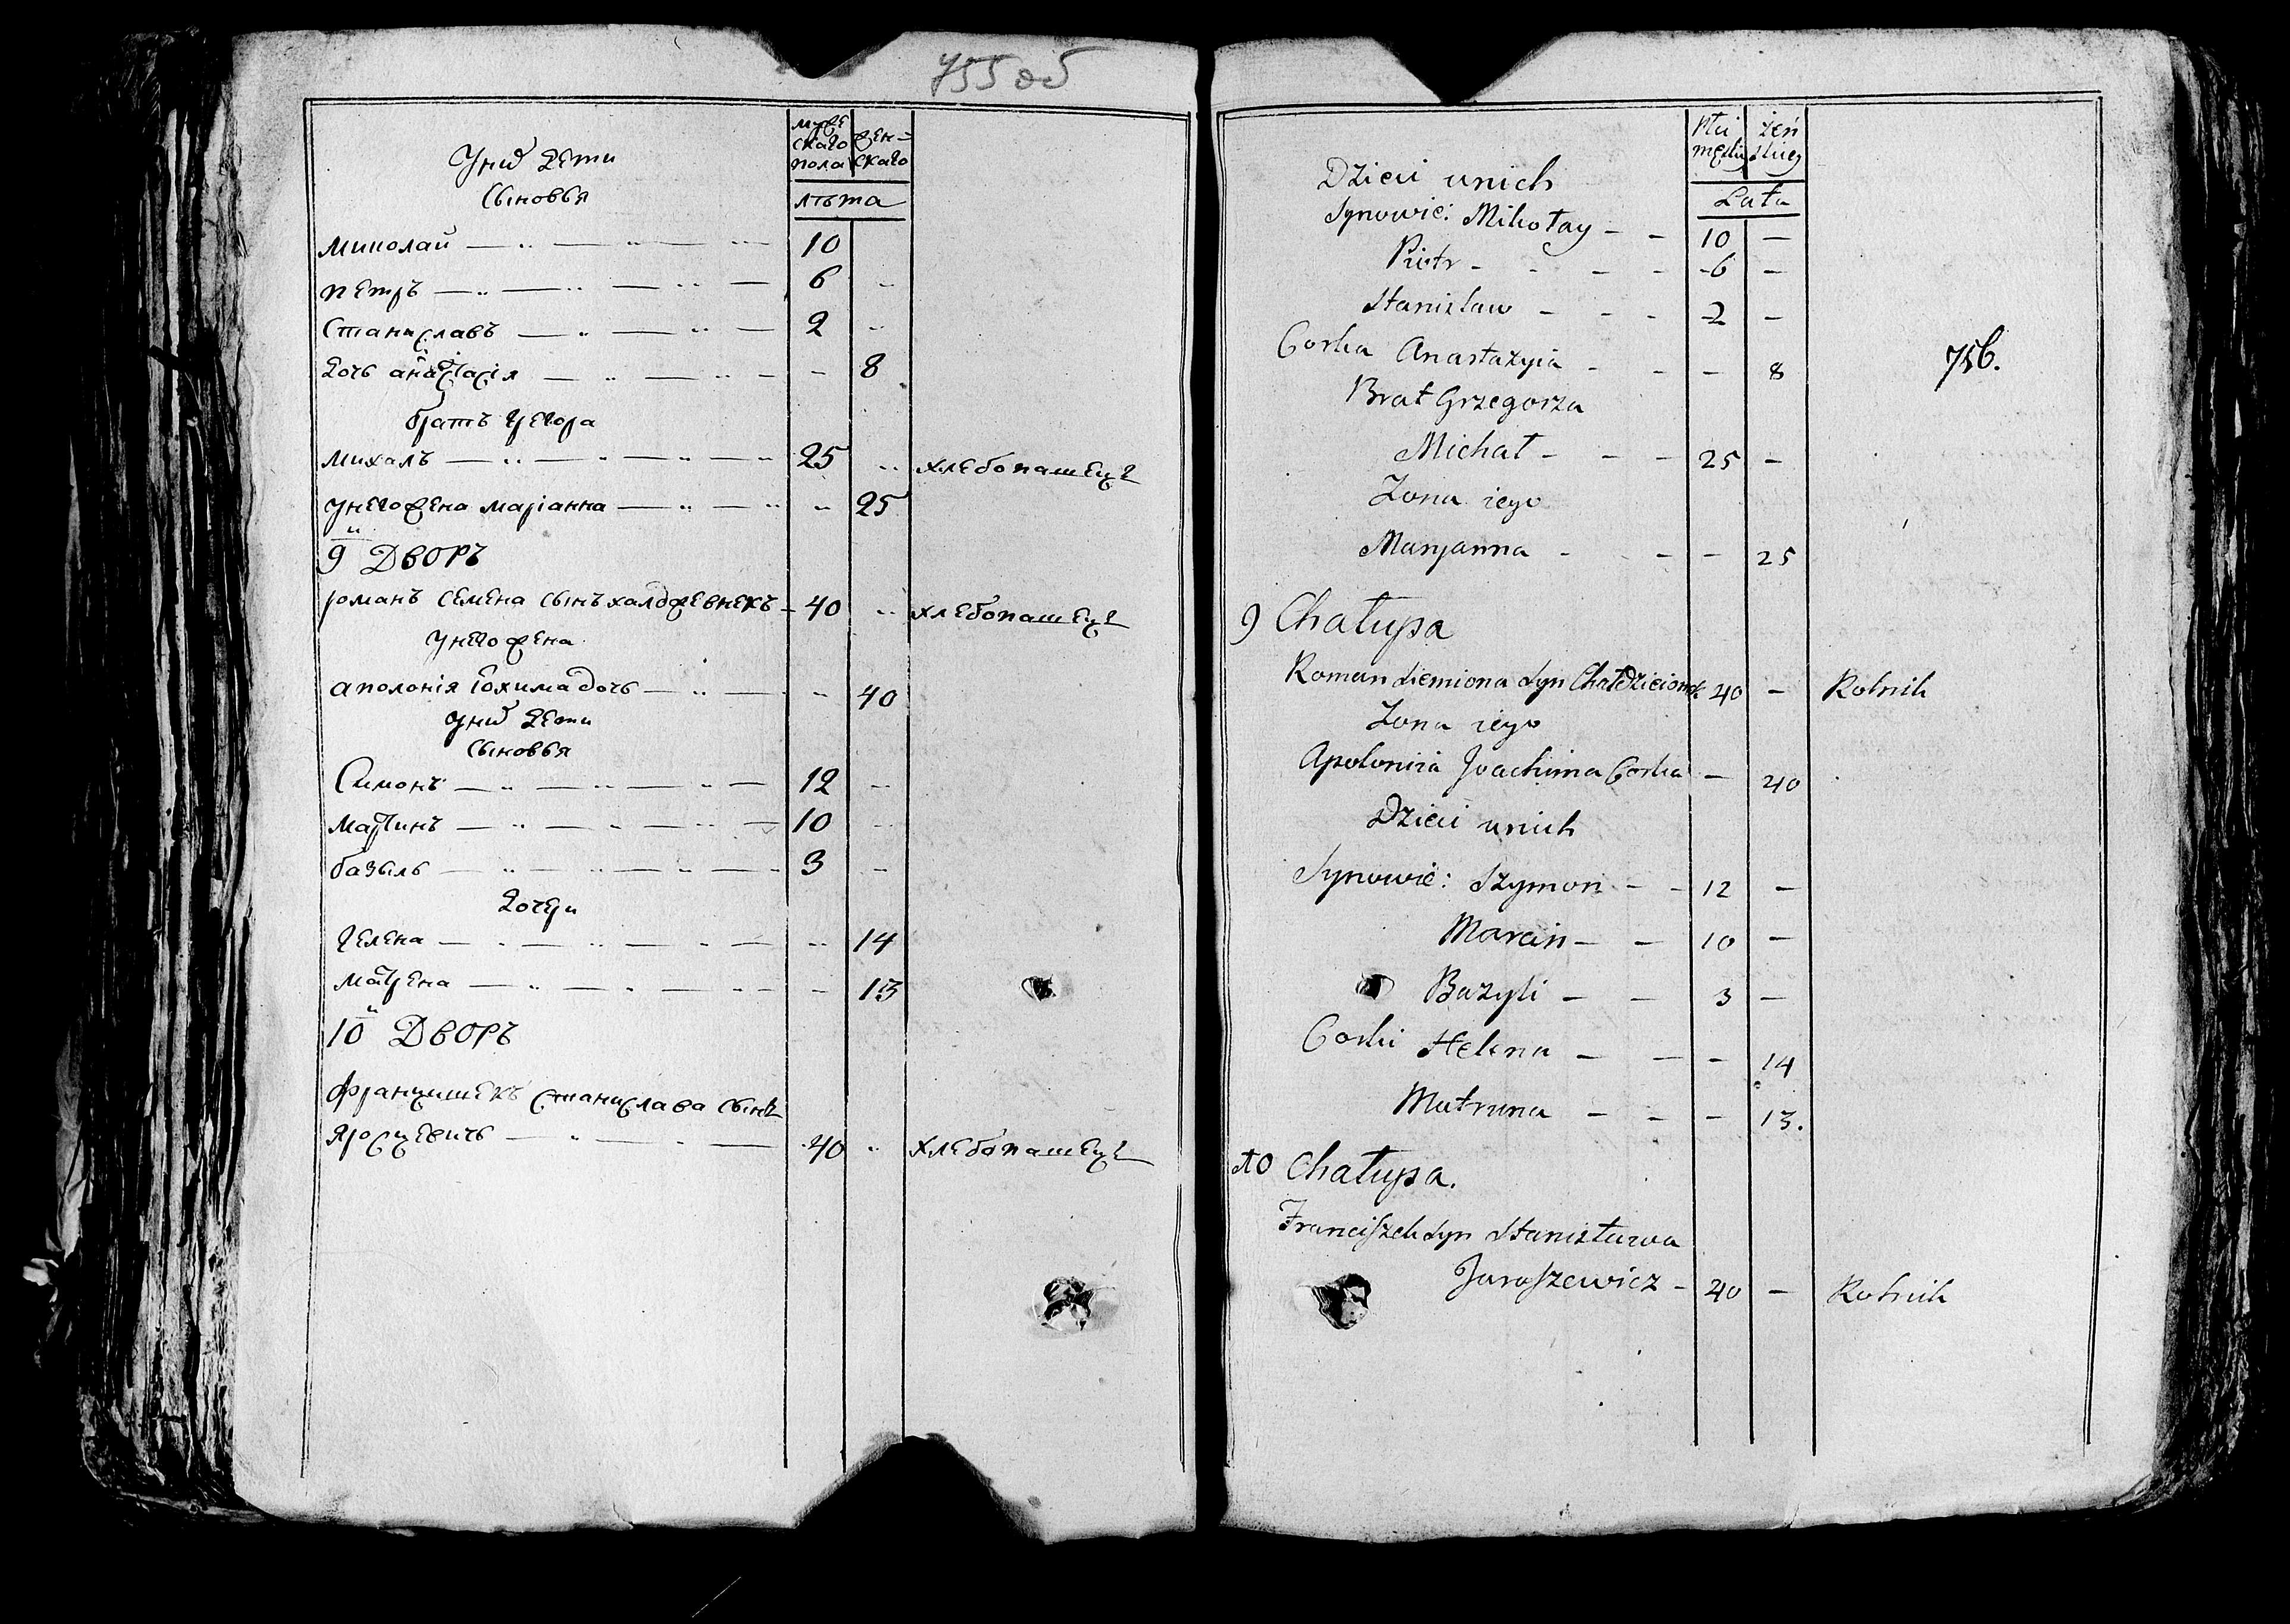 755 об
мужескаго пола
женскаго
лѣта
Унихъ дети
сыновья
миколай 10
петръ 6
Станиславъ 2
дочь анастасія 8
братъ Грегора
михалъ 25 хлебопашецъ
унего жена маріанна 25
9й Дворъ
романъ семена сынъ 40 хлебопашецъ
унего жена
аполонія іохима дочь 40
унихъ дети
сыновья
Симонъ 12
мартинъ 10
базыль 3
дочери
гелена 14
матрена 13
10й Дворъ
францишекъ станислава сынъ
Яросцевичъ 40 хлебопашецъ
Płci męskiey
żeńskiey
Lata
Dzieci unich
Synowie: Mikołay - - 10 -
Piotr - - - - 6 -
Stanisław - - - 2 -
Corka Anastazyia - - - 8
756.
Brat Grzegorza
Michał - - - 25 -
Zona iego
Maryanna - - - - 25
9 Chałupa
Roman Siemiona Syn 40 - Rolnik
Zona iego
Apolonia Joachima Corka - 40
Dzieci unich
Synowie: Szymon - - 12 -
Marcin - - 10 -
Bazyli - - 3 -
Corki Helena - - - 14
Matruna - - - 13.
10 Chałupa.
Franciszek Syn Stanisława
Jaroszewicz - 40 - Rolnik